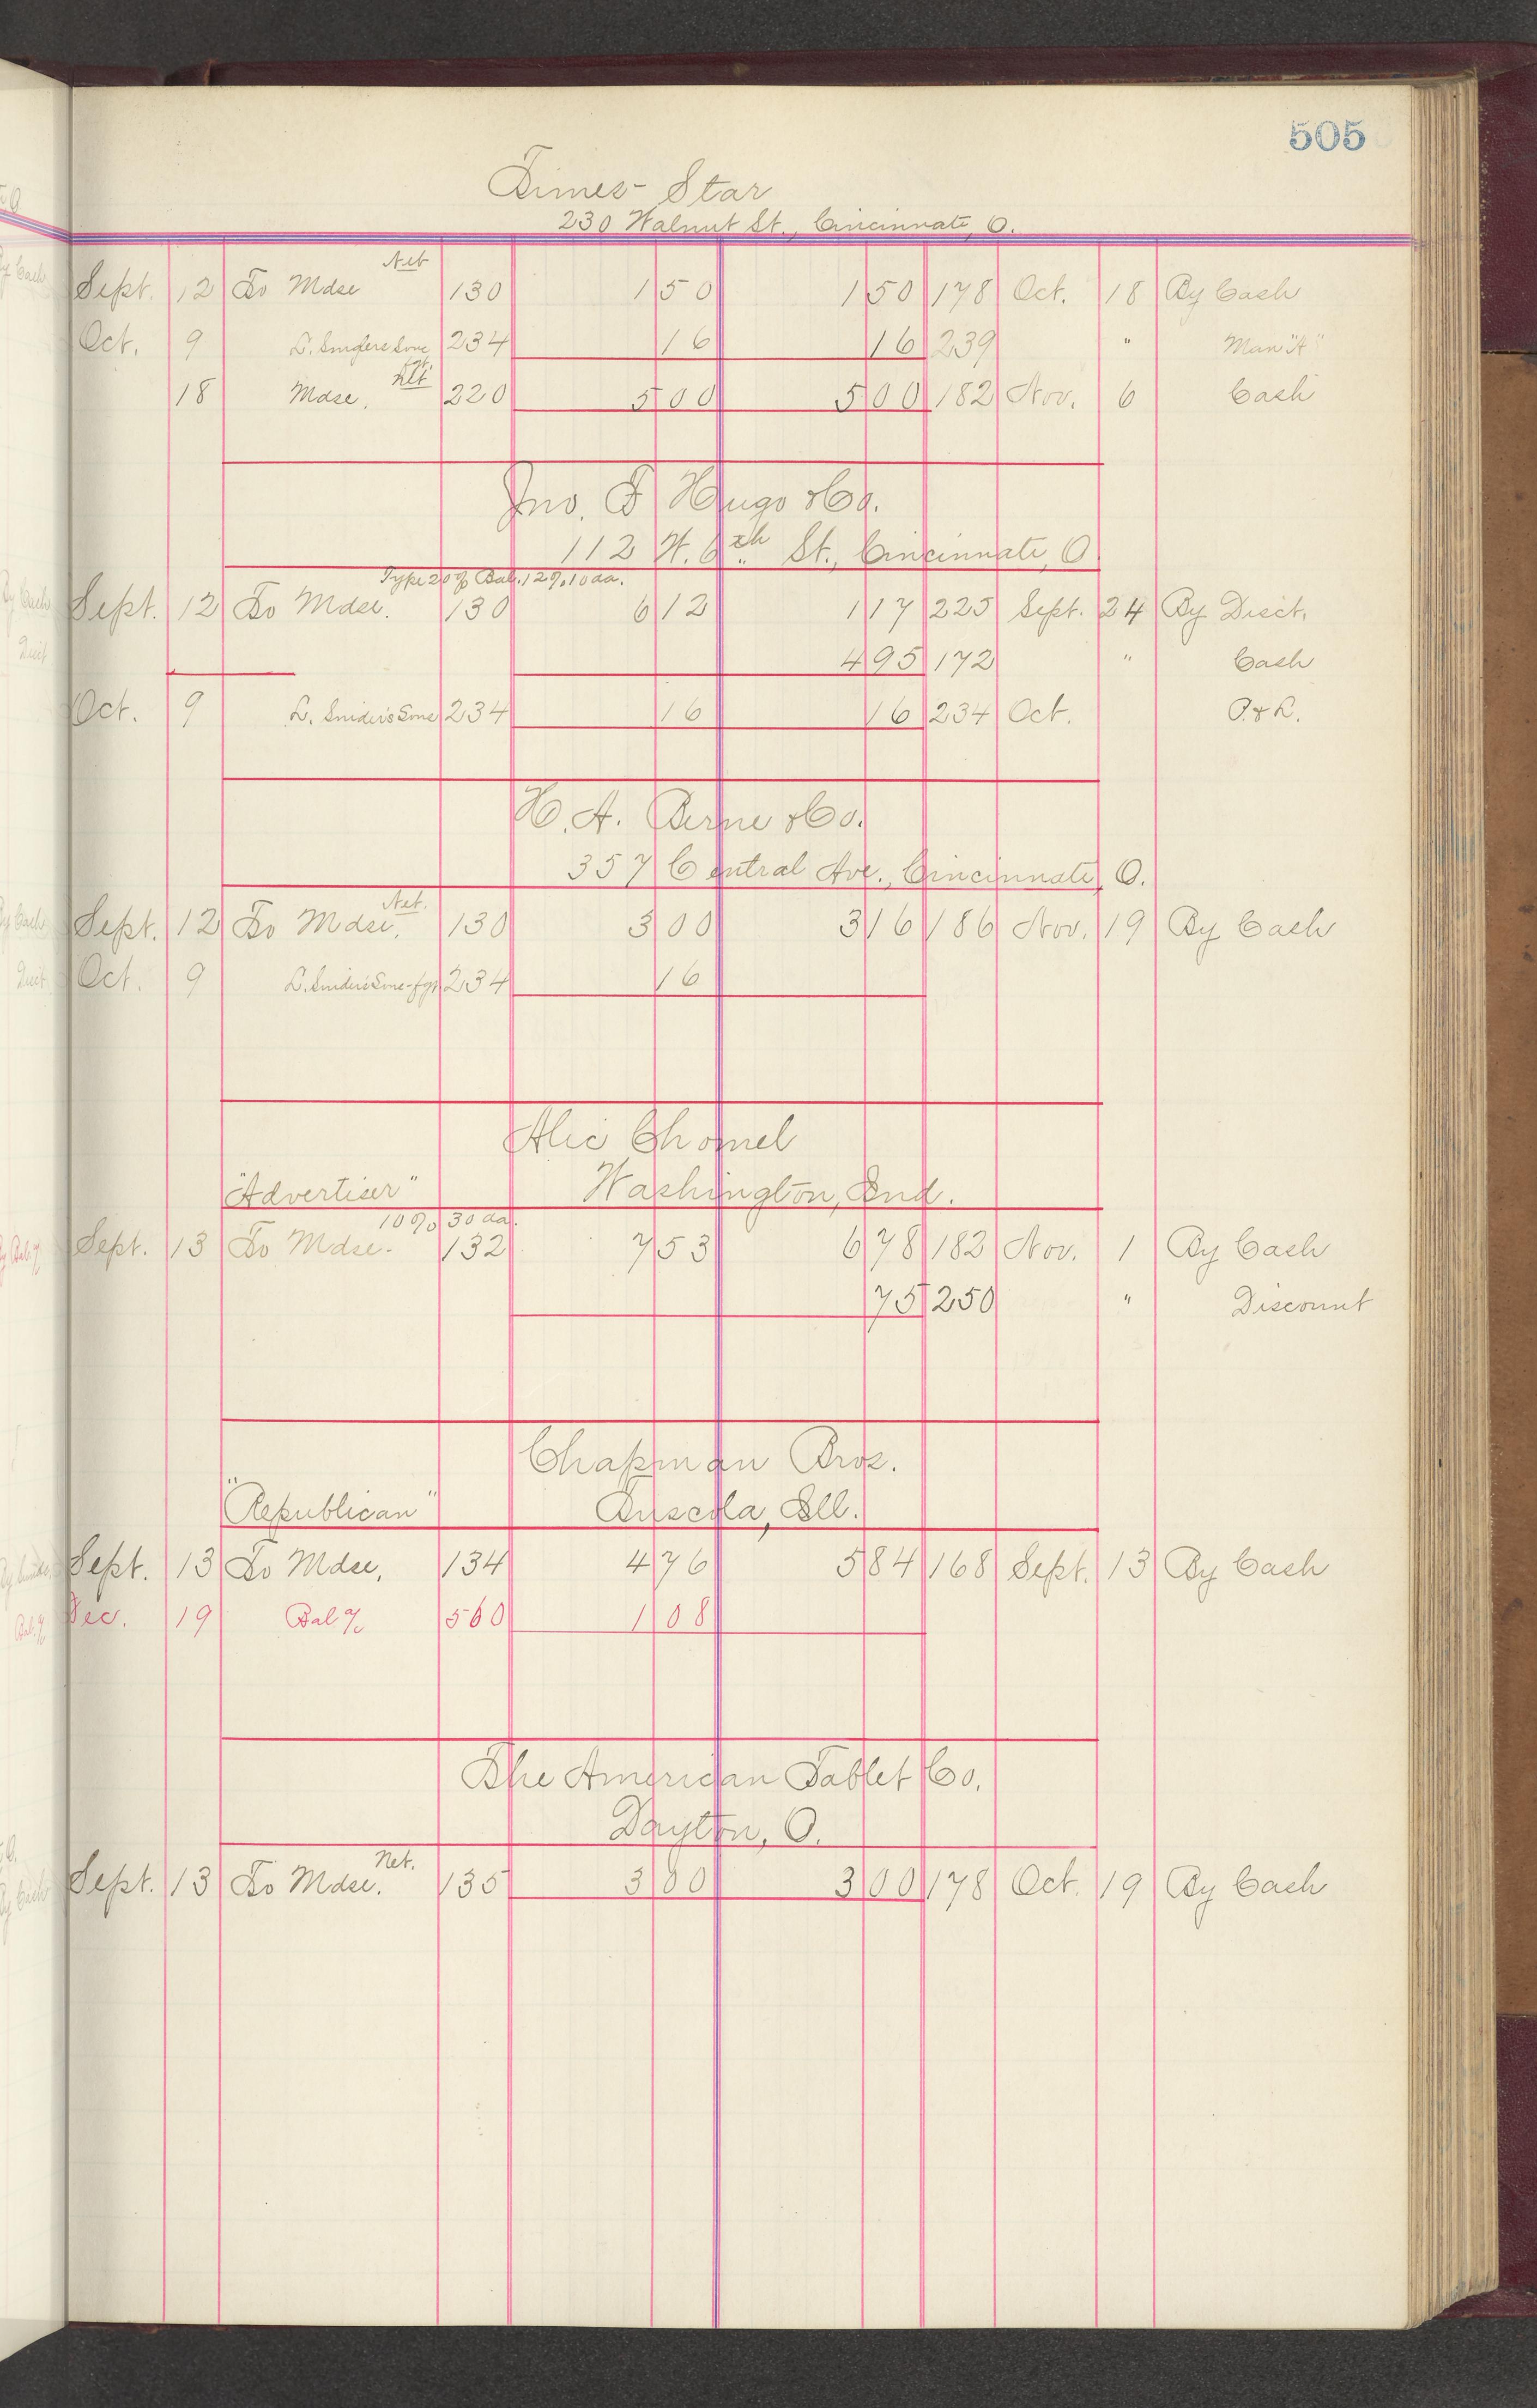 505
Times-Star
230 Walnut St., Cincinnati, O.
Net
Sept. 12 To Mdse 130 1 50 1 50 178 Oct. 18 By Cash
Oct. 9 L. Sniders Sons frt. 234 16 16 239 " Man "A"
Net
18 Mdse. 220 5 00 5 00 182 Nov. 6 Cash
Jno. F Hugo & Co.
112 W. 6th St., Cincinnati, O.
Type 20% Bal. 12%, 10 da.
Sept. 12 To Mdse. 130 6 12 1 17 225 Sept. 24 By Disct.
4 95 172 " Cash
Oct. 9 L. Snider's Sons 234 16 16 234 Oct. P. & L.
H. A. Berne & Co.
357 Central Ave., Cincinnati, O.
Net.
Sept. 12 To Mdse. 130 3 00 3 16 186 Nov. 19 By Cash
Oct. 9 L. Snider's Sons 234 16
Chomel
"Advertiser" Washington, Ind.
10% 30 da.
Sept. 13 To Mdse. 132 7 53 6 78 182 Nov. 1 By Cash
75 250 " Discount
Chapman Bros.
"Republican" Tuscola, Ill.
Sept. 13 To Mdse, 134 4 76 5 84 168 Sept. 13 By Cash
Dec. 19 Bal a/c 560 1 08
The American Tablet Co.
Dayton, O.
Net.
Sept. 13 To Mdse. 135 3 00 3 00 178 Oct. 19 By Cash